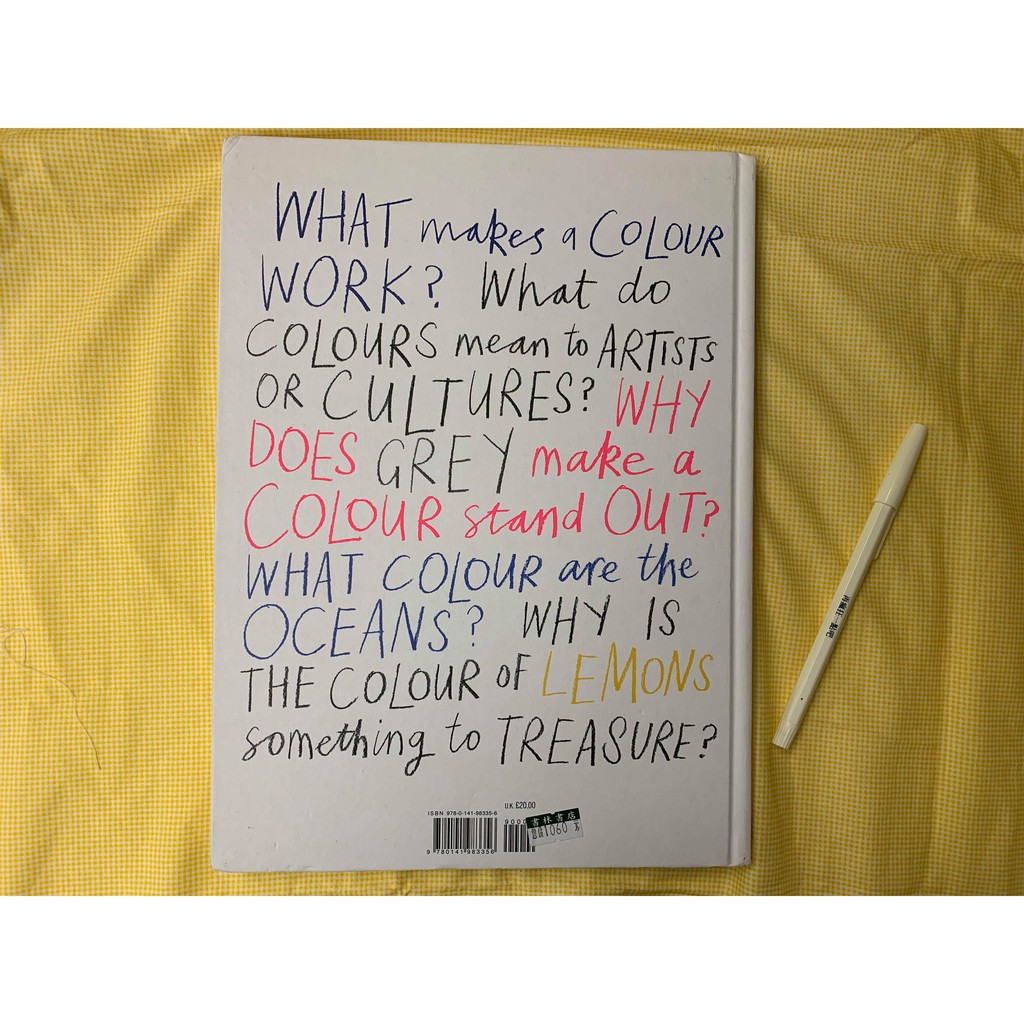 WHAT makes a COLOUR
WORK? What do
COLOURS mean to ARTISTS
OR CULTURES? WHY
DOES GREY make a
COLOUR stand OUT?
WHAT COLOUR are the
OCEANS? WHY IS
THE COLOUR OF LEMONS
something to TREASURE?
U.K. £20.00
ISBN 978-0-141-98335-6
9000
書林書店
1060
9 780141 983356
再撇任一點吧